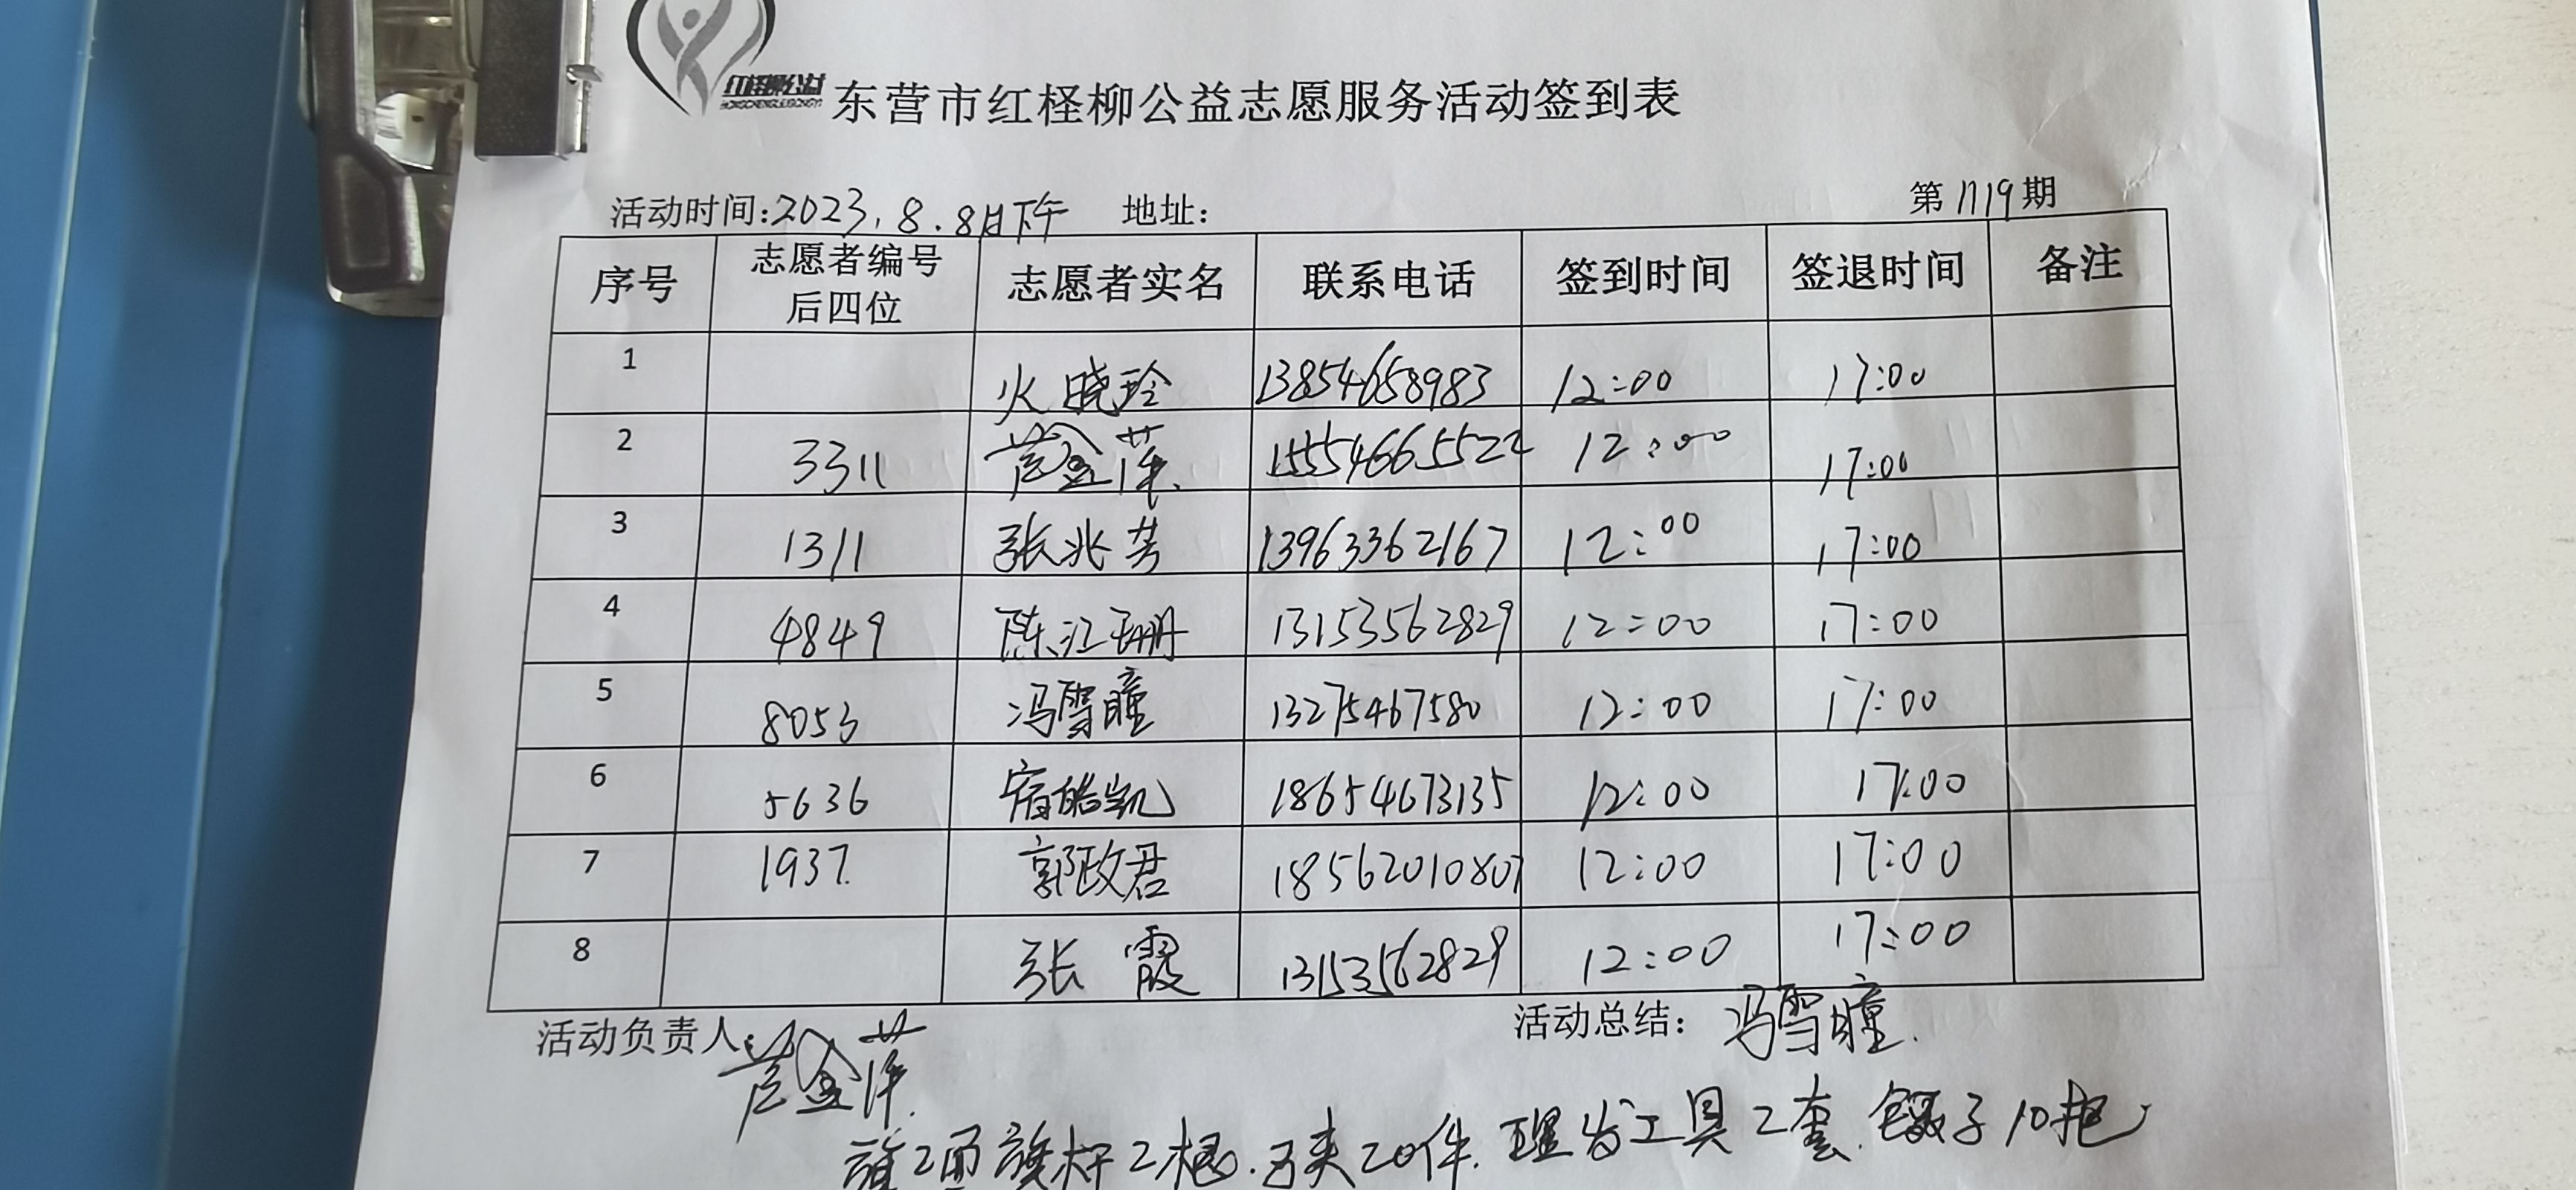 红柽柳公益
HONGCHENGLIUGONGYI
东营市红柽柳公益志愿服务活动签到表
活动时间:2023.8.8日下午 地址: 第1119期
序号 志愿者编号后四位 志愿者实名 联系电话 签到时间 签退时间 备注
1 火晓玲 13854658983 12:00 17:00
2 3311 芦金萍 15554665522 12:00 17:00
3 1311 张兆芳 13963362167 12:00 17:00
4 4849 陈江珊 13153562829 12:00 17:00
5 8053 冯雪瞳 13275467580 12:00 17:00
6 5636 宿皓凯 18654673135 12:00 17:00
7 1937. 郭政君 18562010807 12:00 17:00
8 张霞 13153562829 12:00 17:00
活动负责人:芦金萍. 活动总结:冯雪瞳.
旗2面 旗杆2根.马夹20件.理发工具2套.镊子10把